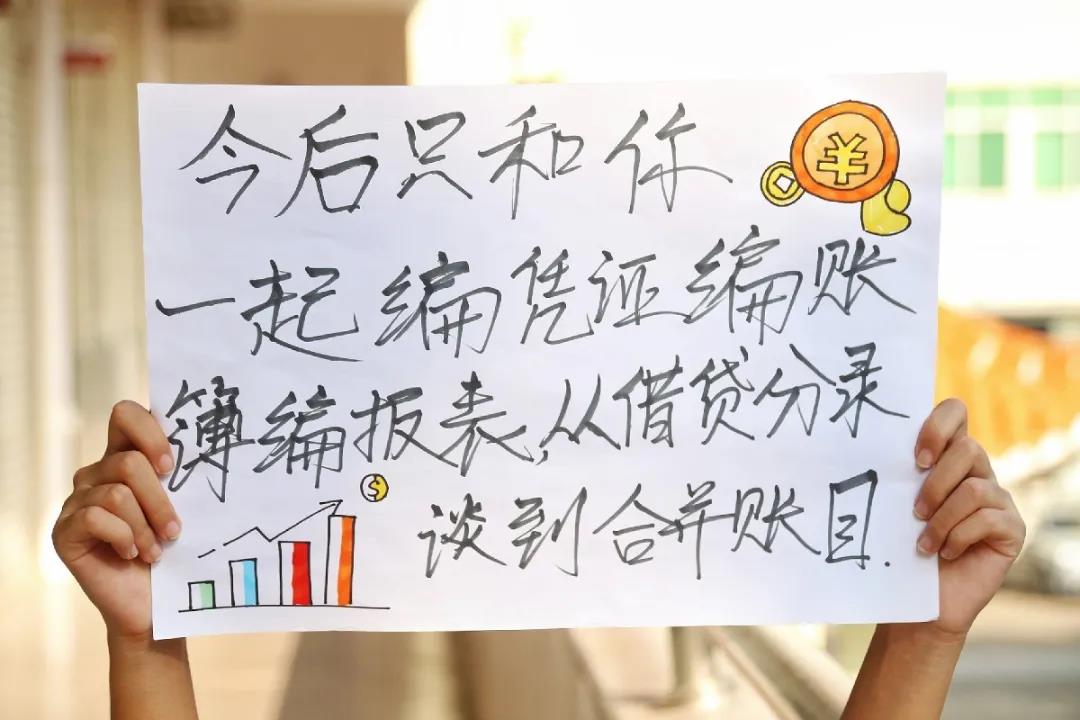 今后只和你
¥
一起编凭证编账
簿编报表,从借贷分录
$
谈到合并账目.